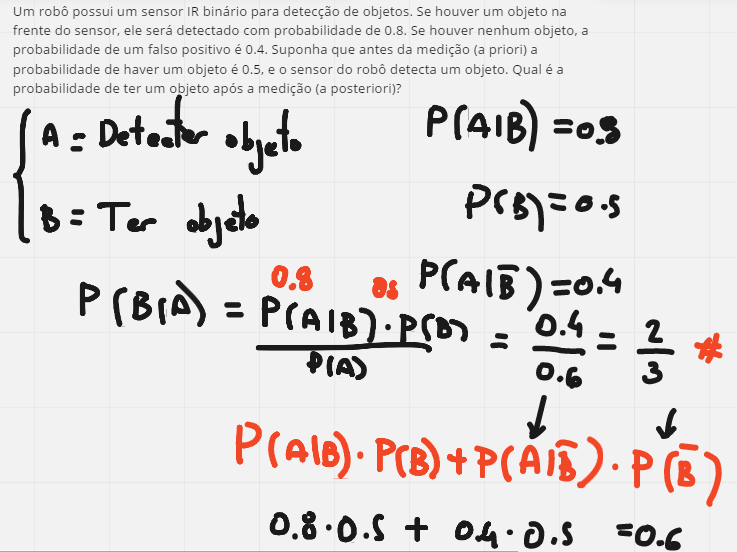 Um robô possui um sensor IR binário para detecção de objetos. Se houver um objeto na
frente do sensor, ele será detectado com probabilidade de 0.8. Se houver nenhum objeto, a
probabilidade de um falso positivo é 0.4. Suponha que antes da medição (a priori) a
probabilidade de haver um objeto é 0.5, e o sensor do robô detecta um objeto. Qual é a
probabilidade de ter um objeto após a medição (a posteriori)?
A = Detectar objeto
P(A|B) = 0.8
B = Ter objeto
P(B) = 0.5
P(A|B̅) = 0.4
0.8 0.5
P(B|A) = P(A|B) · P(B) / P(A) = 0.4 / 0.6 = 2 / 3 #
P(A|B) · P(B) + P(A|B̅) · P(B̅)
0.8 · 0.5 + 0.4 · 0.5 = 0.6